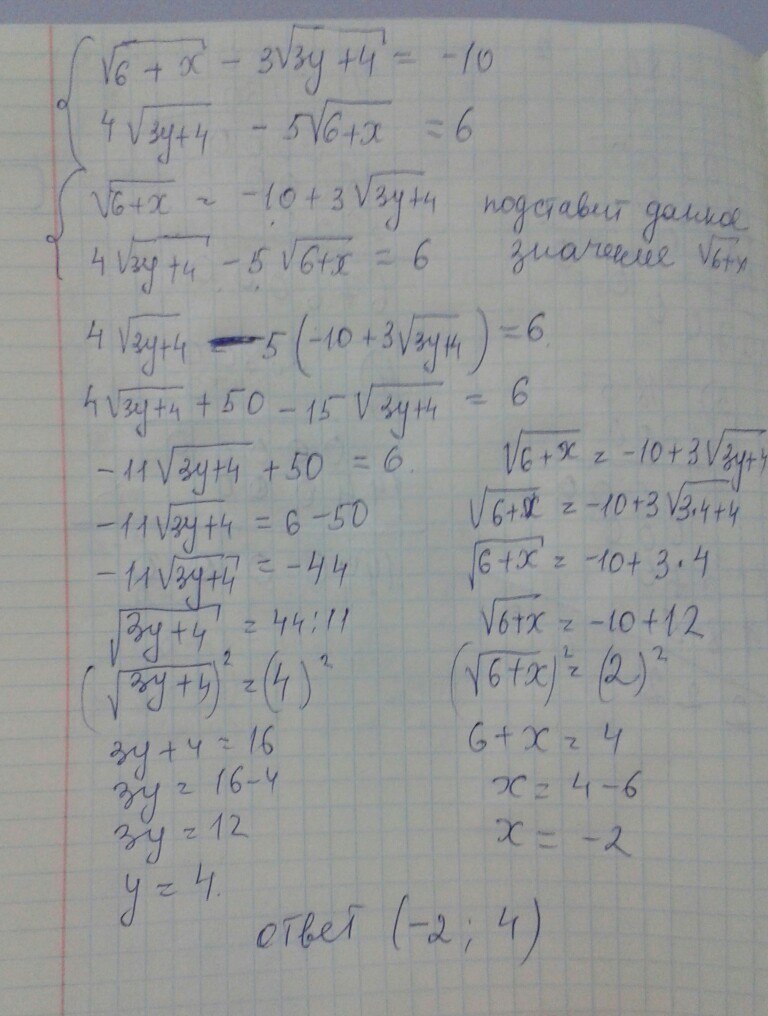 √6+x - 3√3y+4 = -10
4√3y+4 - 5√6+x = 6
√6+x = -10+3√3y+4 подставит данное
4√3y+4 - 5√6+x = 6 значение √6+x
4√3y+4 - 5(-10+3√3y+4) = 6
4√3y+4 + 50 - 15√3y+4 = 6
-11√3y+4 + 50 = 6
-11√3y+4 = 6-50
-11√3y+4 = -44
√3y+4 = 44:11
(√3y+4)² = (4)²
3y+4 = 16
3y = 16-4
3y = 12
y = 4.
√6+x = -10+3√3y+4
√6+x = -10+3√3·4+4
√6+x = -10+3·4
√6+x = -10+12
(√6+x)² = (2)²
6+x = 4
x = 4-6
x = -2
ответ (-2; 4)